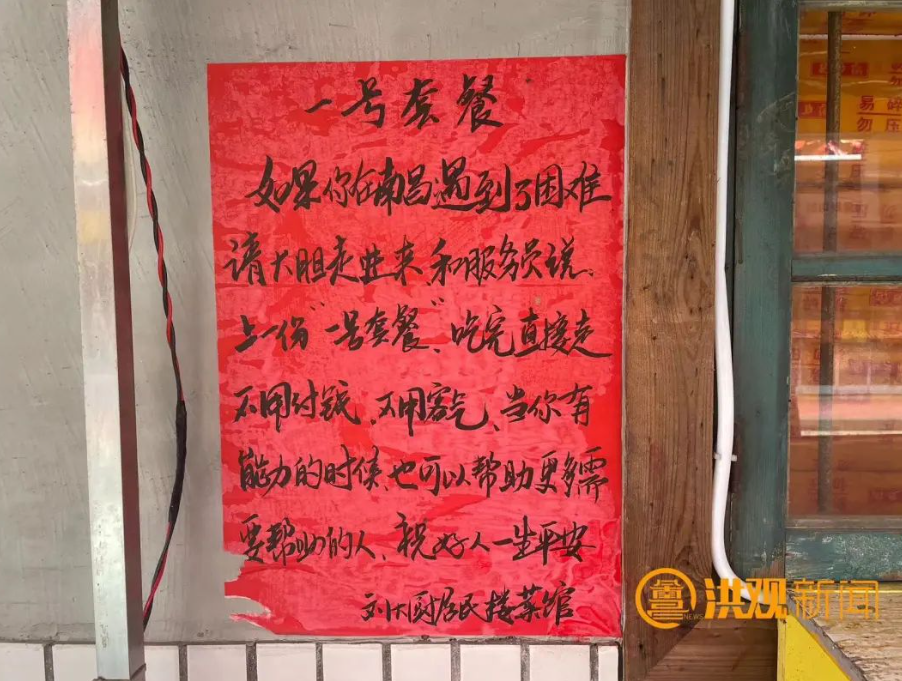 一号套餐
如果你在南昌遇到了困难
请大胆走进来,和服务员说、
上一份“一号套餐”、吃完直接走
不用付钱、不用客气、当你有
能力的时候,也可以帮助更多需
要帮助的人、祝好人一生平安
刘大厨居民楼菜馆
易碎
勿压
洪观新闻
NEWS